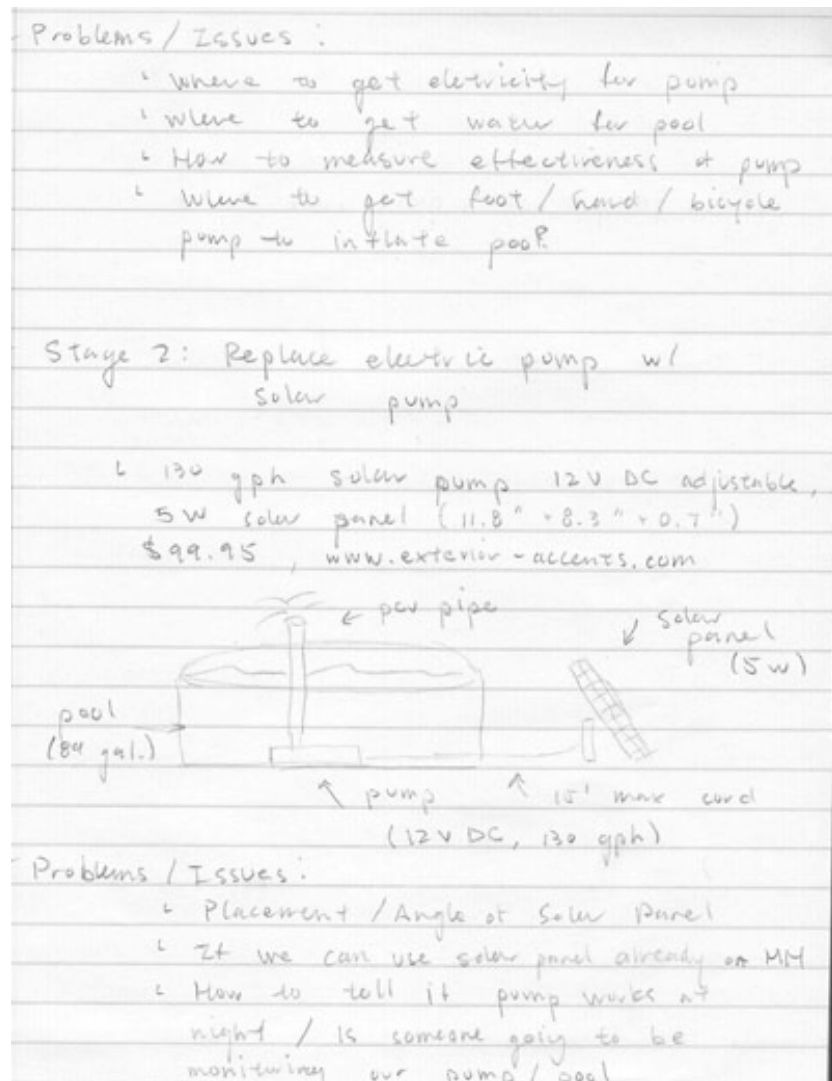 Problems / Issues :
where to get eletricity for pump
where to get water for pool
How to measure effectiveness of pump
where to get foot / hand / bicycle
pump to inflate pool?
Stage 2: Replace electric pump w/
solar pump
130 gph solar pump 12V DC adjustable,
5W solar panel (11.8" × 8.3" × 0.7")
$99.95, www.exterior-accents.com
← pcv pipe
solar
panel
(5w)
pool
(84 gal.)
pump
15' max cord
(12V DC, 130 gph)
Problems / Issues:
Placement / Angle of Solar Panel
If we can use solar panel already on MM
How to tell if pump works at
night / is someone going to be
monitoring our pump / pool